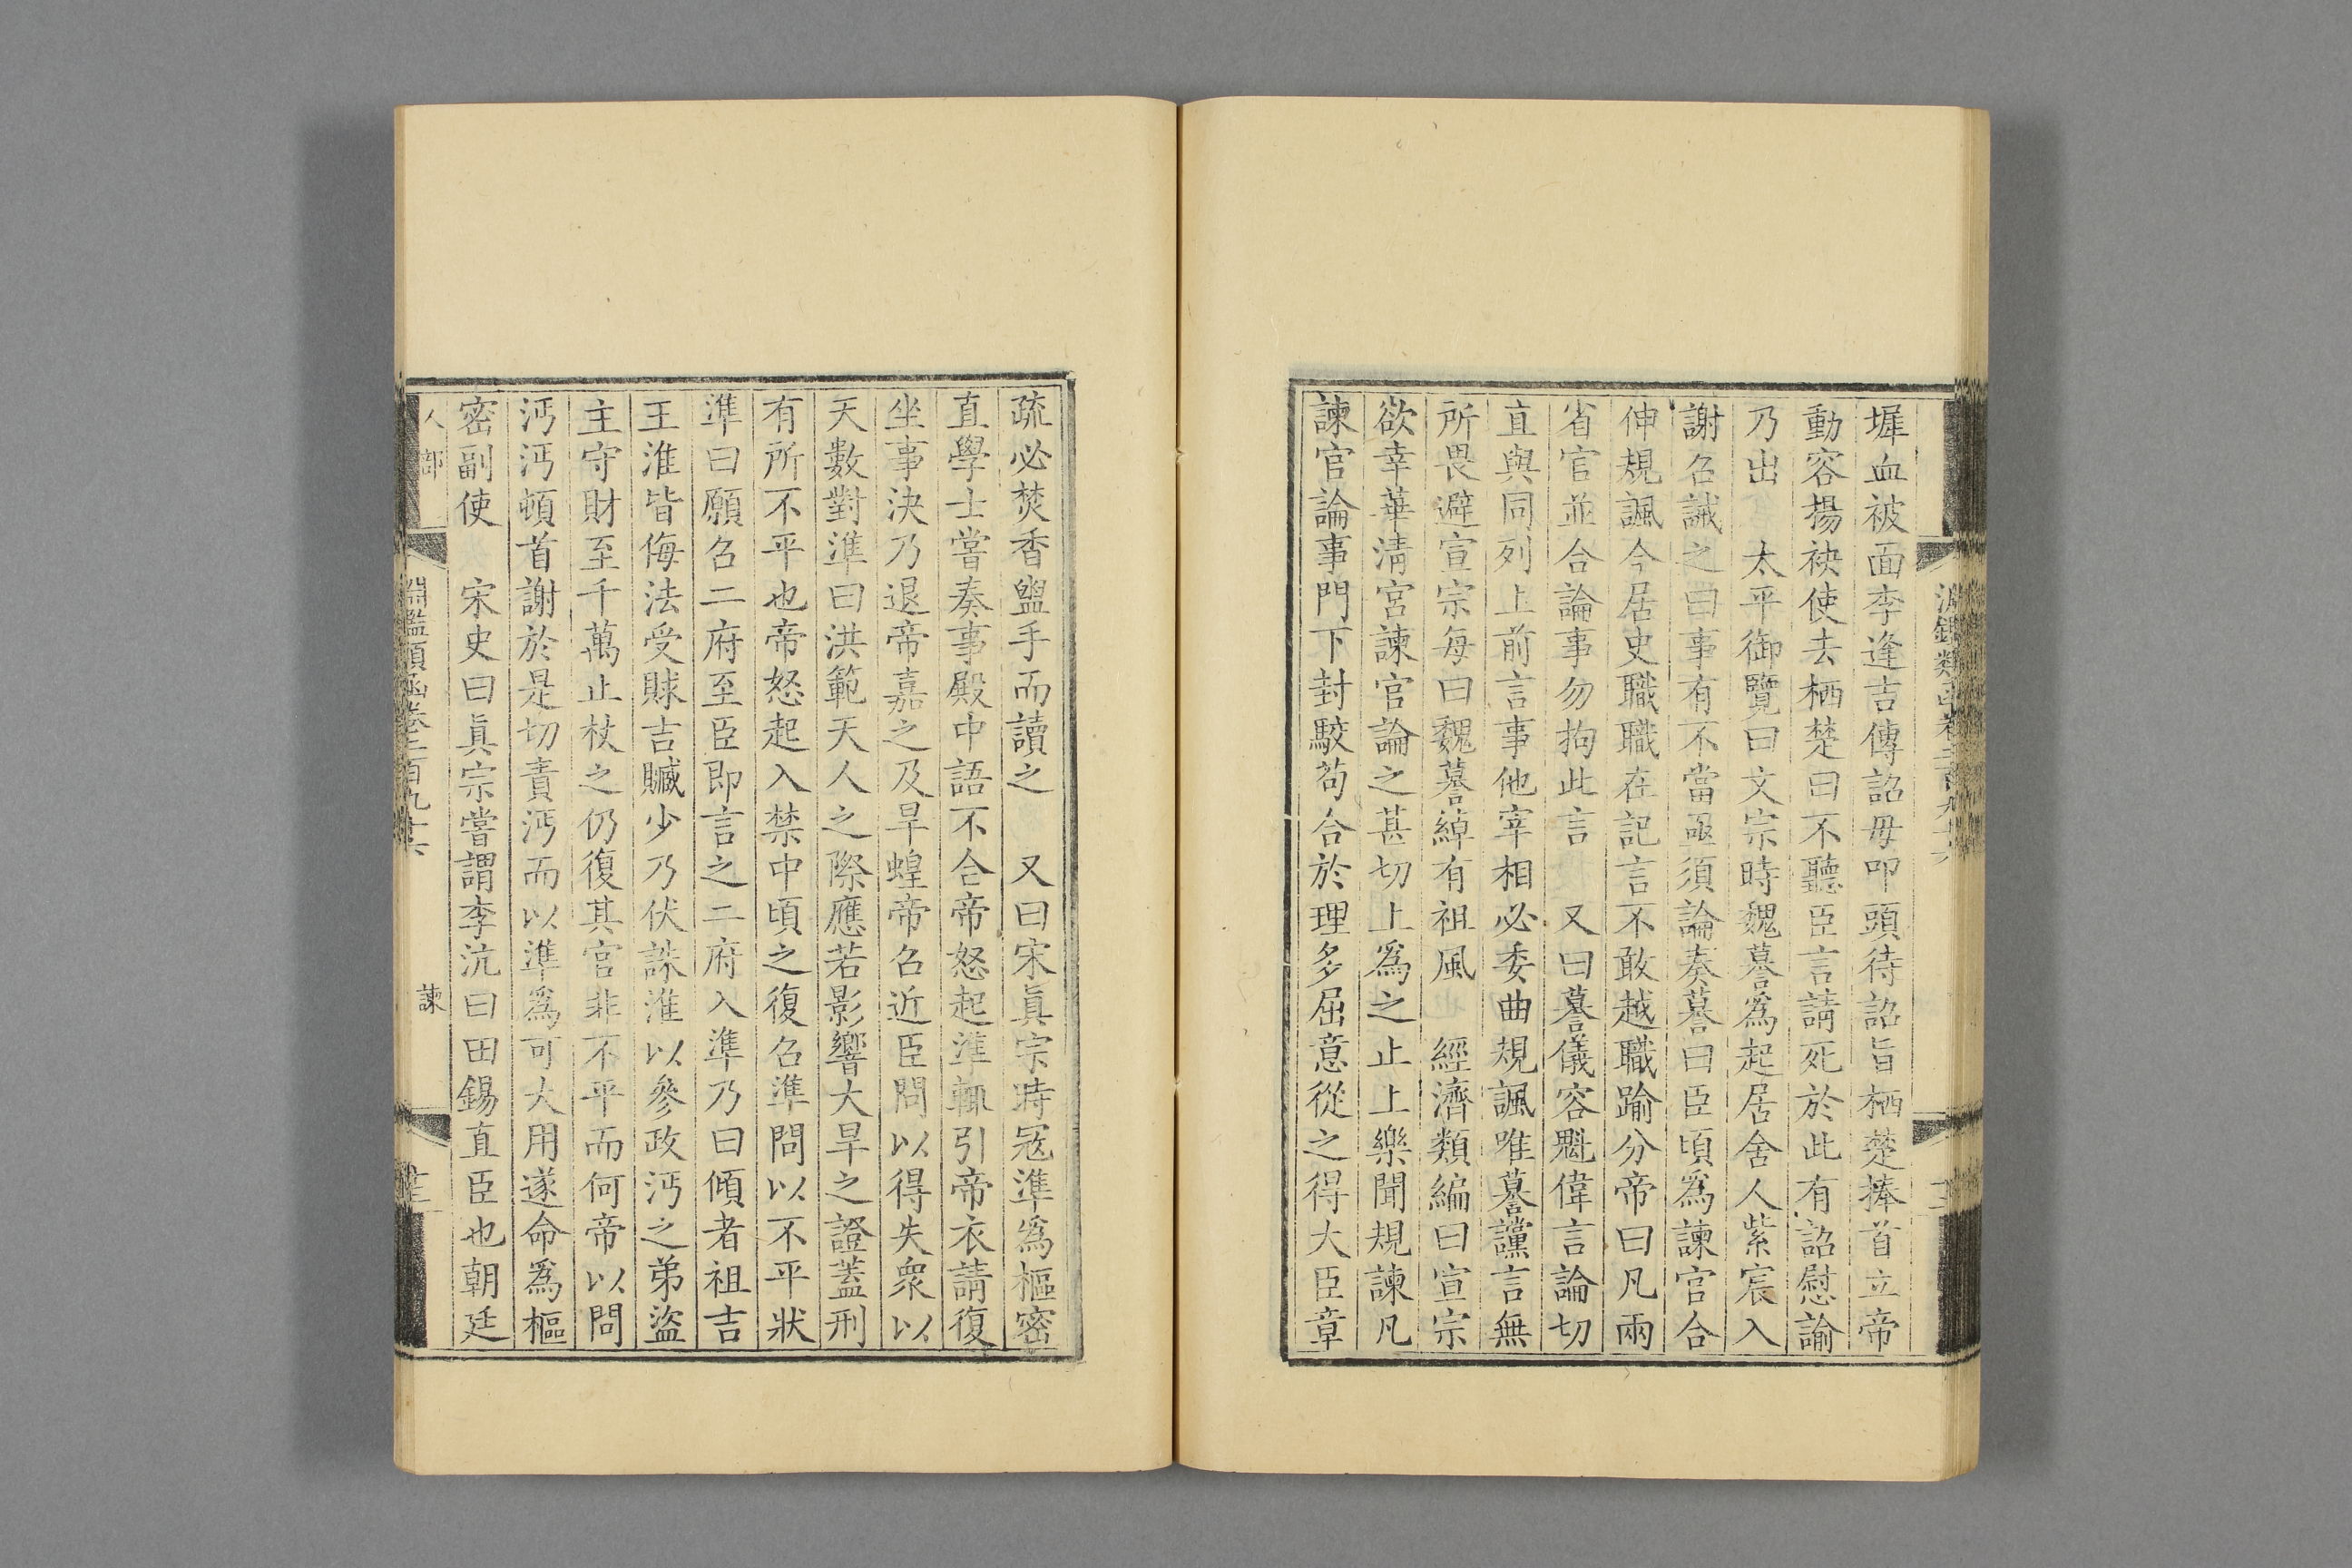 墀血被面李逢吉傳詔毋叩頭待詔旨栖楚捧首立帝
動容揚袂使去栖楚曰不聽臣言請死於此有詔慰諭
乃出　太平御覽曰文宗時魏謩爲起居舍人紫宸入
謝召誡之曰事有不當亟須論奏謩曰臣頃爲諫官合
伸規諷今居史職職在記言不敢越職踰分帝曰凡兩
省官並合論事勿拘此言　又曰謩儀容魁偉言論切
直與同列上前言事他宰相必委曲規諷唯謩讜言無
所畏避宣宗每曰魏謩綽有祖風　經濟類編曰宣宗
欲幸華清宮諫官論之甚切上爲之止上樂聞規諫凡
諫官論事門下封駮苟合於理多屈意從之得大臣章
疏必焚香盥手而讀之　又曰宋眞宗時冦準爲樞密
直學士嘗奏事殿中語不合帝怒起準輒引帝衣請復
坐事決乃退帝嘉之及旱蝗帝召近臣問以得失衆以
天數對準曰洪範天人之際應若影響大旱之證蓋刑
有所不平也帝怒起入禁中頃之復召準問以不平狀
準曰願召二府至臣即言之二府入準乃曰傾者祖吉
王淮皆侮法受賕吉贓少乃伏誅淮以參政沔之弟盜
主守財至千萬止杖之仍復其官非不平而何帝以問
沔沔頓首謝於是切責沔而以準爲可大用遂命爲樞
密副使　宋史曰眞宗嘗謂李沆曰田錫直臣也朝廷
人部
淵鑑類函卷二百九十六
諫